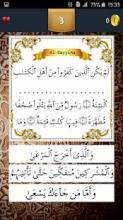 15:39
3
0
Al-Bayyina
لَمْ يَكُنِ الَّذِينَ كَفَرُوا مِنْ أَهْلِ الْكِتَابِ
الْبَيِّنَةُ ۝ رَسُولٌ مِنَ اللَّهِ يَتْلُو صُحُفًا
مُطَهَّرَةً ۝ فِيهَا كُتُبٌ قَيِّمَةٌ ۝
وَالَّذِي أَخْرَجَ الْمَرْعَىٰ
وَالْمُشْرِكِينَ مُنْفَكِّينَ حَتَّىٰ تَأْتِيَهُمُ
وَأَمَّا مَنْ جَاءَكَ يَسْعَىٰ